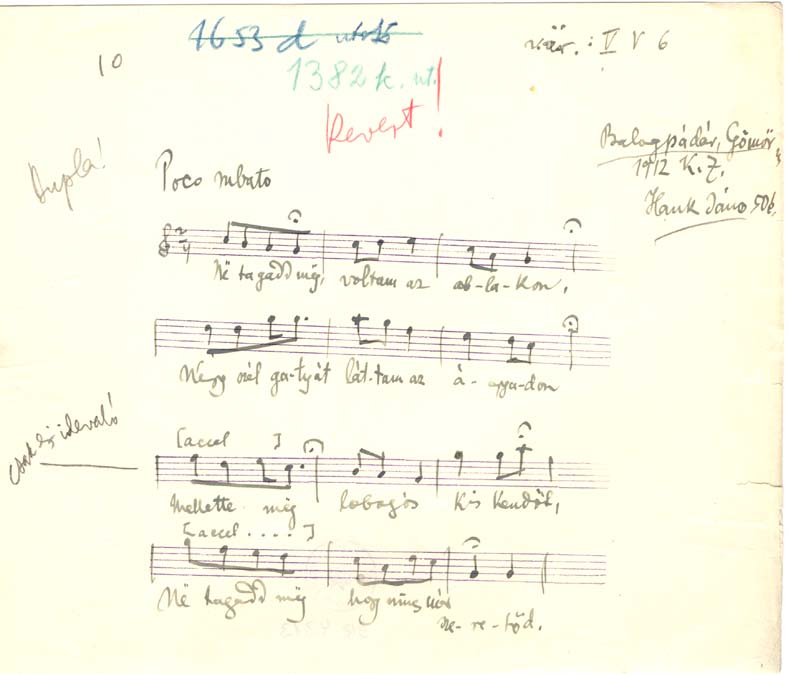 1653 d utolsó
10
vár. : V V 6
1382 k. ut.
Revert!
Dupla!
Balogpádár, Gömör
1912 K. Z.
Hauk János 50 é.
Poco rubato
2/4
Në tagadd még, voltam az ab-la-kon,
Négy szél ga-tyát lát-tam az á-gyadon
csak ez idevaló
[accel ]
Mellette még lobogós kis kendőt,
[accel....]
Në tagadd még hogy nincs
sze-re-tőd.